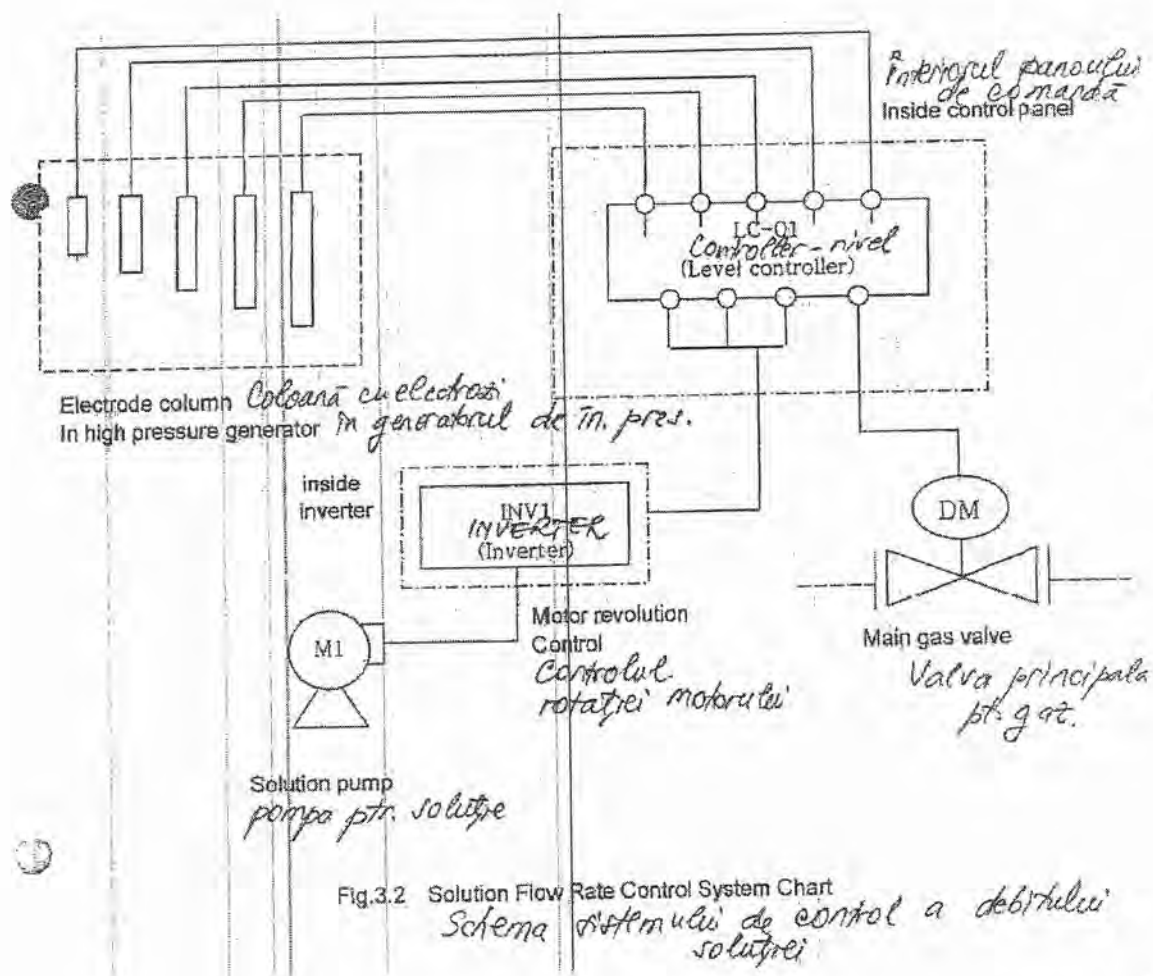 Interiorul panoului
de comandă
Inside control panel
LC-01
Controller-nivel
(Level controller)
Electrode column Coloană cu electrozi
In high pressure generator în generatorul de în. pres.
inside
inverter
INV1
INVERTER
(Inverter)
DM
M1
Motor revolution
Control
Controlul
rotației motorului
Main gas valve
Valva principala
pt. gaz.
Solution pump
pompa ptr. soluție
Fig.3.2 Solution Flow Rate Control System Chart
Schema sistemului de control a debitului
soluției